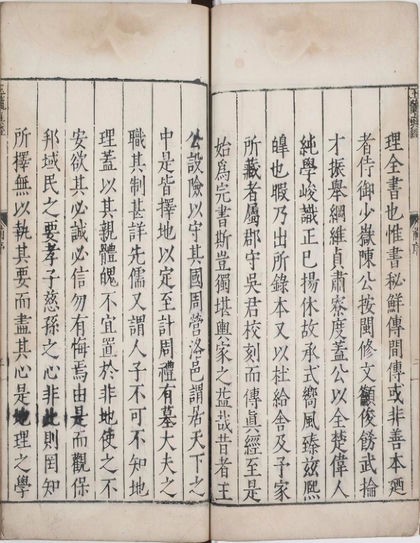 理全書也惟書秘鮮傳間傳或非善本廼
者侍御少嶽陳公按閩修文籲俊飭武掄
才振舉綱維貞肅寮度蓋公以全楚偉人
純學峻識正已揚休故承式嚮風臻兹熈
皥也暇乃出所錄本又以杜給舍及予家
所藏者屬郡守吳君校刻而傳眞經至是
始爲完書斯豈獨堪輿家之益哉昔者王
公設險以守其國周營洛邑謂居天下之
中是皆擇地以定至計周禮有墓大夫之
職其制甚詳先儒又謂人子不可不知地
理蓋以其親體魄不宜置於非地使之不
安欲其必誠必信勿有悔焉由是而觀保
邦域民之要孝子慈孫之心非此則罔知
所擇無以執其要而盡其心是地理之學